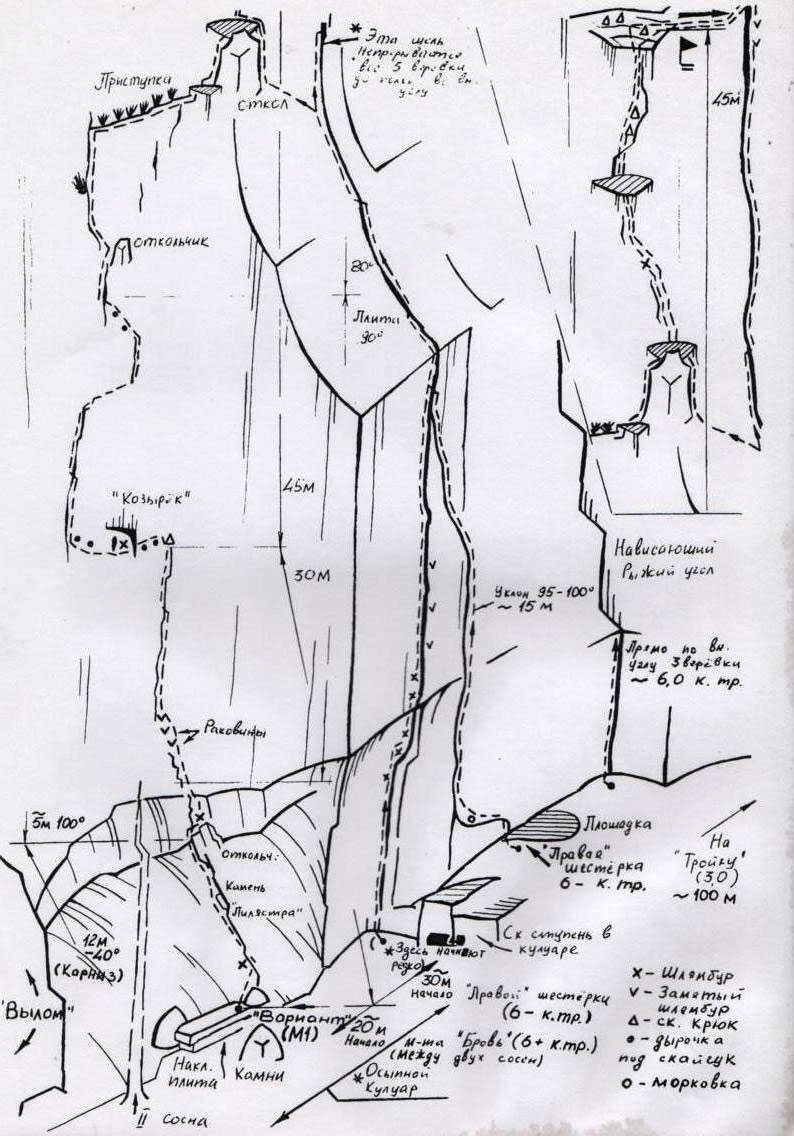 * Эта щель
Непрерывается
все 5 верёвки
скол
Приступка
откол
45м
Откольчик
80°
Плита
90°
45м
"Козырёк"
30м
Нависающий
Рыжий угол
Уклон 95-100°
~ 15 м
Прямо по вн.
углу 3 верёвки
~ 6,0 к. тр.
Раковины
~5м 100°
Откольч:
Камень
"Пилястра"
Площадка
"Правая"
шестёрка
6- к. тр.
На
"Тройку"
(3,0)
~100 м
12м
~40°
(Карниз)
Ск ступень в
кулуаре
* Здесь начинают
редко
30м
начало "Правой" шестёрки
(6- к.тр.)
"Вылом"
"Вариант"
(М1)
20м
Начало м-та "Бровь" (6+ к.тр.)
(между двух сосен)
Накл.
плита
Камни
* Осыпной
Кулуар
II сосна
x - Шлямбур
v - Замятый
шлямбур
Δ - ск. крюк
● - дырочка
под скайхук
o - морковка